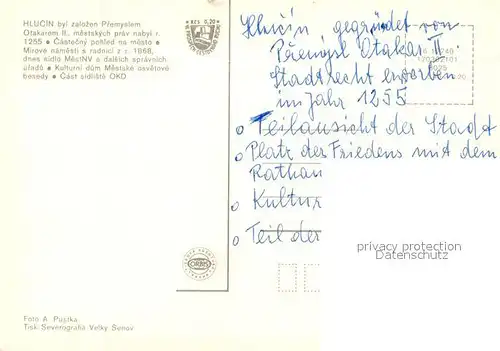 HLUČÍN byl založen Přemyslem
Otakarem II., městských práv nabyl r.
1255 • Částečný pohled na město •
Mírové náměstí s radnicí z r. 1868,
dnes sídlo MěstNV a dalších správních
úřadů • Kulturní dům Městské osvětové
besedy • Část sídliště OKD
Kčs 0,20
ORBIS
Foto A. Pustka
Tisk Severografia Velký Šenov
Hlučín, gegründet von
Přemysl Otakar II
Stadtrecht erworben
im Jahr 1255
o Teilansicht der Stadt
o Platz der Friedens mit dem
Rathau
o Kultur
o Teil der
privacy protection
watermark